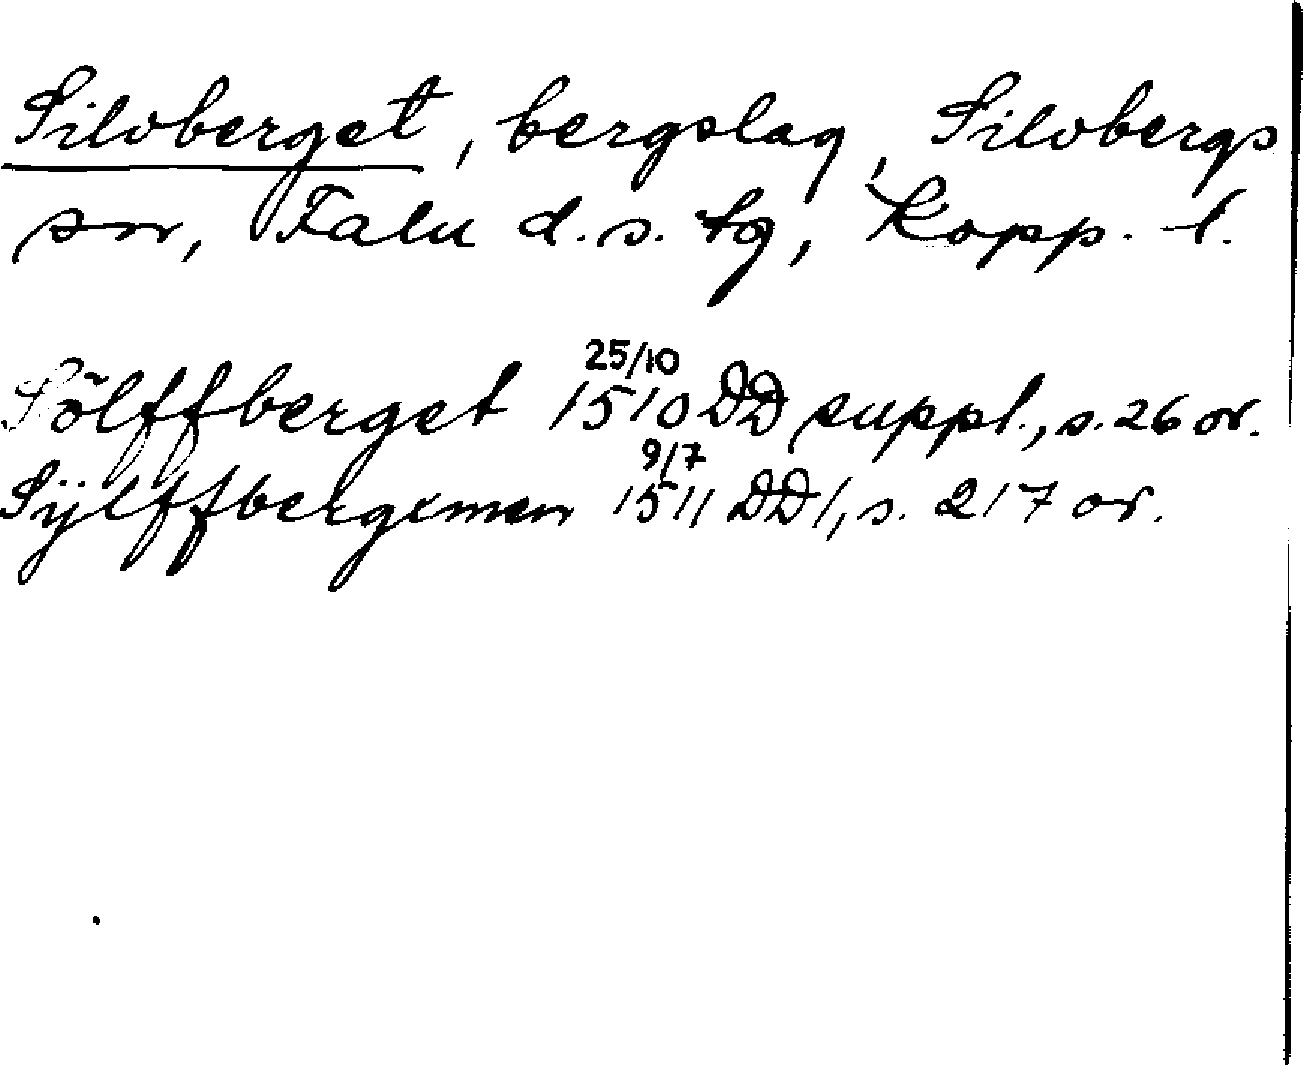 Silvberget, bergslag, Silvbergs
sn, Falu d.s. tg, Kopp. l.
Sölffberget 25/10 1510 DD suppl., s. 26 or.
Sÿlffbergxmen 9/7 1511 DD1, s. 217 or.